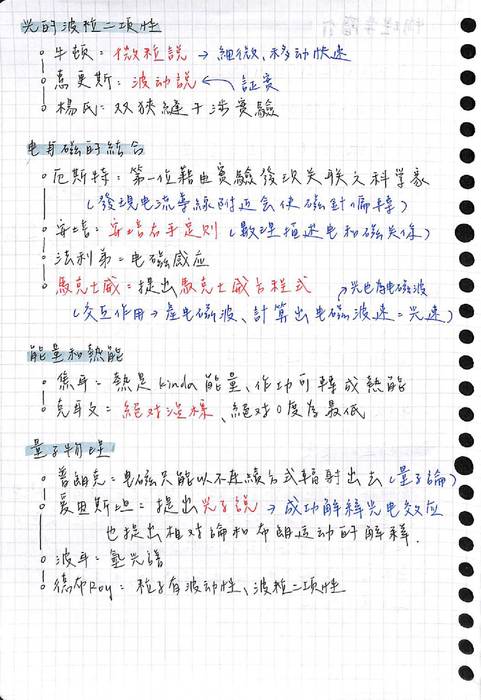 光的波粒二項性
牛頓：微粒說→細微、移動快速
惠更斯：波動說 ← 証實
楊氏：双狹縫干涉實驗
電與磁的結合
厄斯特：第一位藉由實驗發現关联之科學家
(發現電流導線附近会使磁針偏轉)
安培：安培右手定則(數理描述电和磁关係)
法利第：电磁感应
馬克士威：提出馬克士威方程式 →光也為电磁波
(交互作用→產电磁波、計算出电磁波速=光速)
能量和熱能
焦耳：熱是kinda能量、作功可轉成熱能
克耳文：絕对溫標、絕對0度為最低
量子物理
普朗克：電磁只能以不連續方式輻射出去(量子論)
愛因斯坦：提出光子說→成功解釋光电效应
也提出相对論和布朗运动的解釋.
波耳：氫光譜
德布Roy：粒子有波动性、波粒二項性